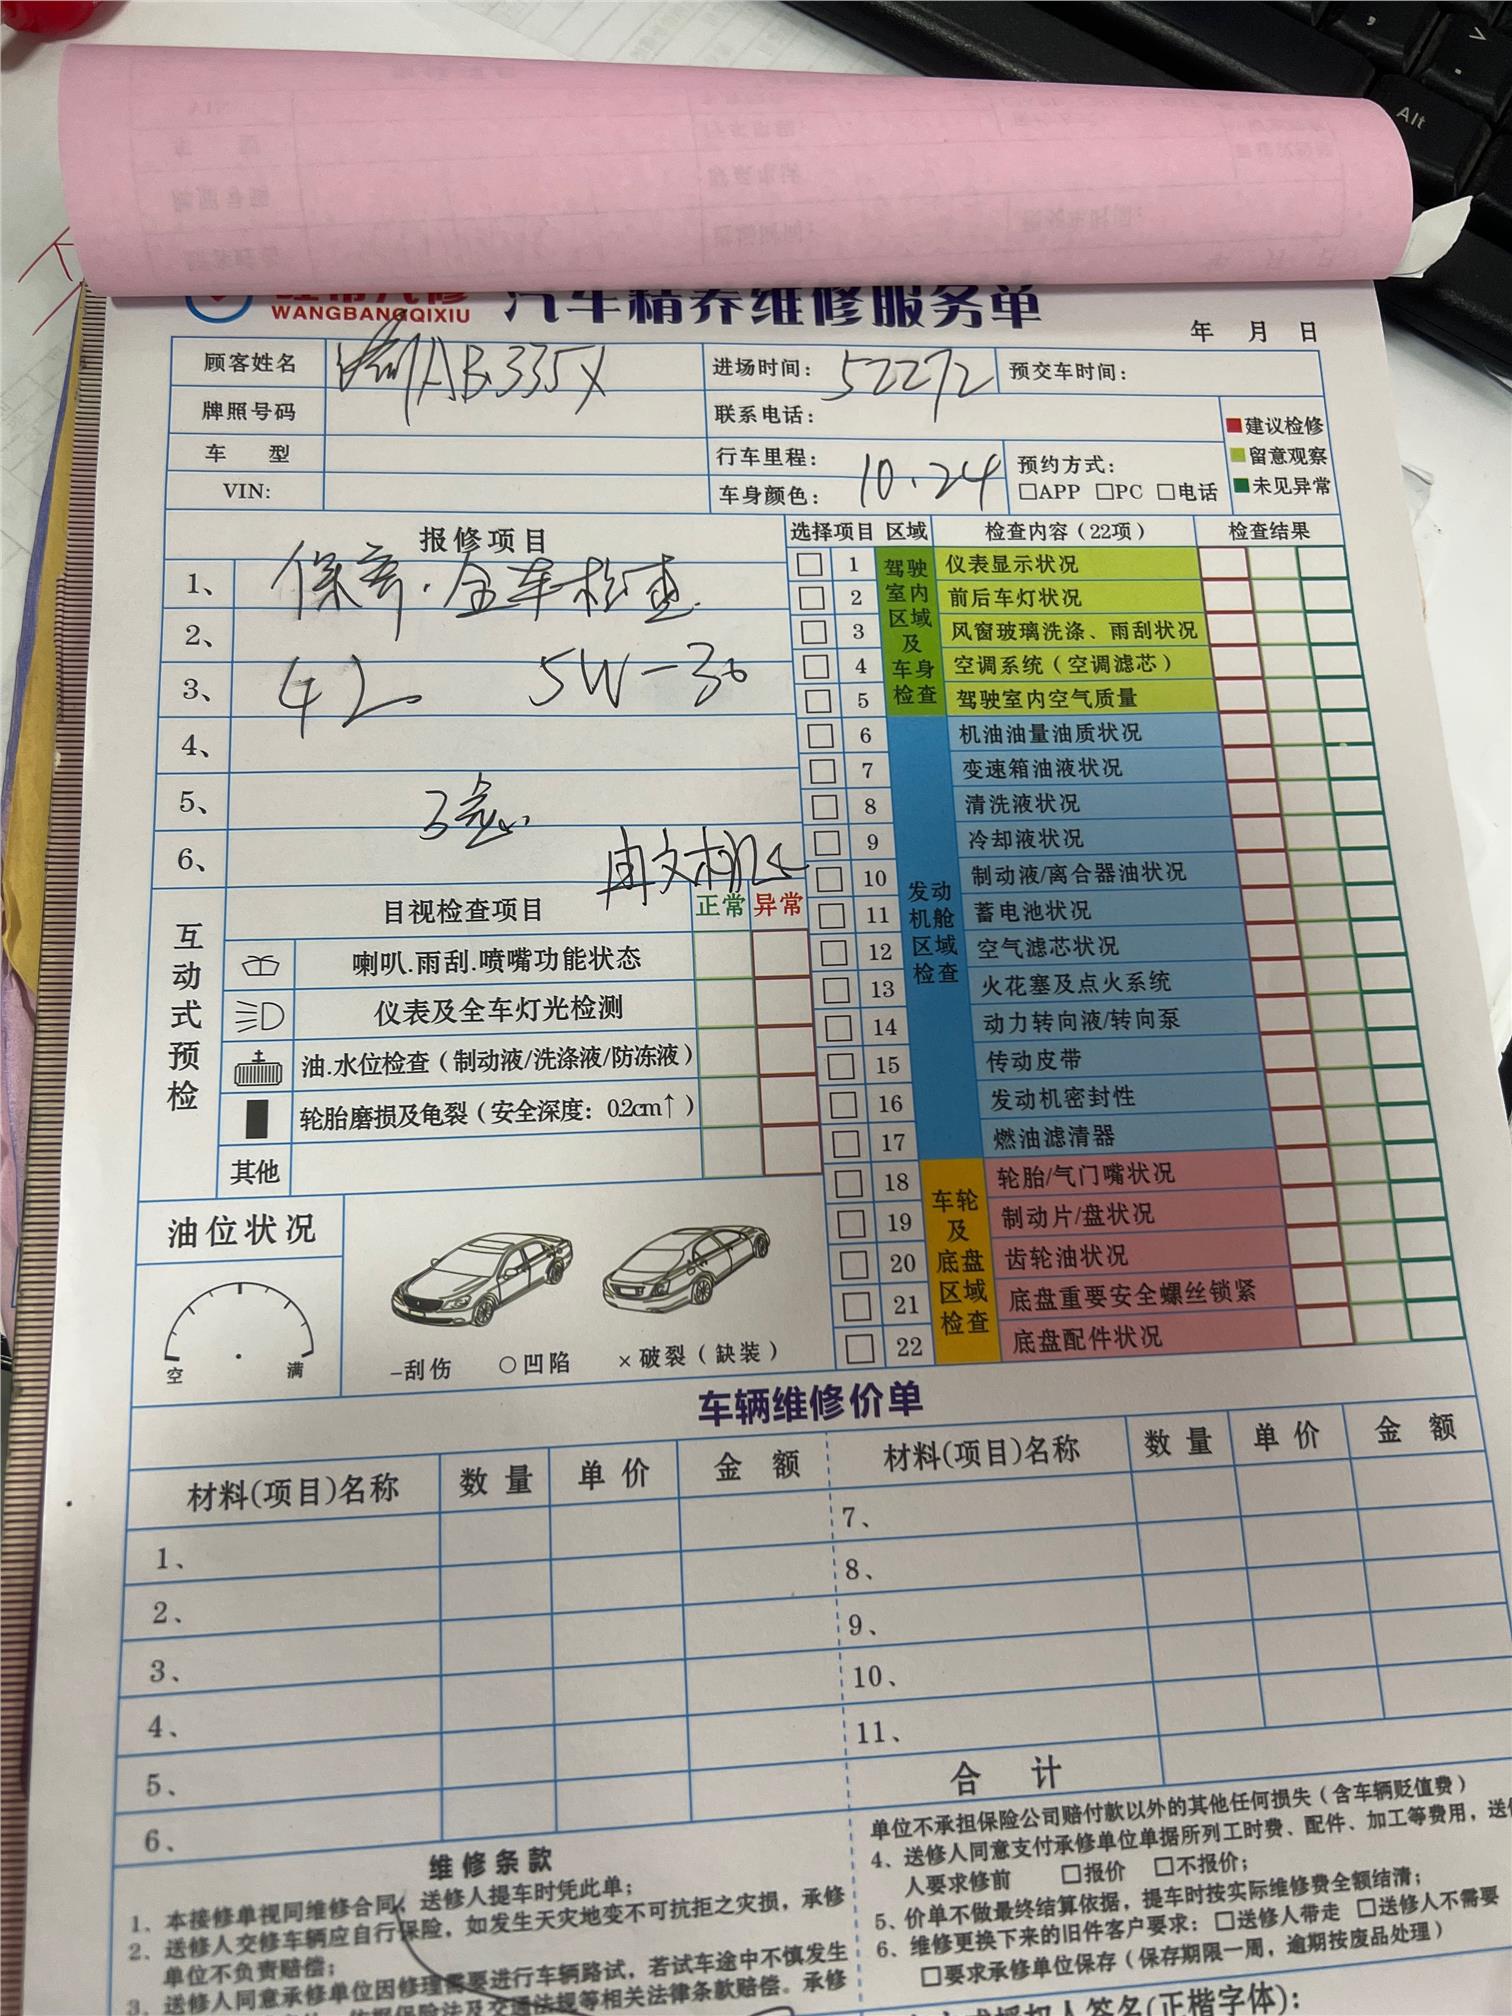 Alt
WANGBANGQIXIU 汽车精养维修服务单
年 月 日
顾客姓名 AB335X 进场时间: 52272 预交车时间:
牌照号码 联系电话:
车 型 行车里程: 10.24 预约方式:
VIN: 车身颜色: □APP □PC □电话
建议检修
留意观察
未见异常
报修项目
1、 保养.全车检查
2、
3、 4L 5W-30
4、
5、 3滤
6、
选择项目 区域 检查内容(22项) 检查结果
驾驶室内区域及车身检查
1 仪表显示状况
2 前后车灯状况
3 风窗玻璃洗涤、雨刮状况
4 空调系统(空调滤芯)
5 驾驶室内空气质量
发动机舱区域检查
6 机油油量油质状况
7 变速箱油液状况
8 清洗液状况
9 冷却液状况
10 制动液/离合器油状况
11 蓄电池状况
12 空气滤芯状况
13 火花塞及点火系统
14 动力转向液/转向泵
15 传动皮带
16 发动机密封性
17 燃油滤清器
车轮及底盘区域检查
18 轮胎/气门嘴状况
19 制动片/盘状况
20 齿轮油状况
21 底盘重要安全螺丝锁紧
22 底盘配件状况
互动式预检
目视检查项目 正常 异常
喇叭.雨刮.喷嘴功能状态
仪表及全车灯光检测
油.水位检查(制动液/洗涤液/防冻液)
轮胎磨损及龟裂(安全深度: 0.2cm↑)
其他
油位状况
空 满
-刮伤 ○凹陷 ×破裂(缺装)
车辆维修价单
材料(项目)名称 数量 单价 金额 材料(项目)名称 数量 单价 金额
1、 7、
2、 8、
3、 9、
4、 10、
5、 11、
6、 合 计
维修条款
1、本接修单视同维修合同，送修人提车时凭此单；
2、送修人交修车辆应自行保险，如发生天灾地变不可抗拒之灾损，承修
单位不负责赔偿；
3、送修人同意承修单位因修理需要进行车辆路试，若试车途中不慎发生
依据保险法及交通法规等相关法律条款赔偿。承修
单位不承担保险公司赔付款以外的其他任何损失(含车辆贬值费)
4、送修人同意支付承修单位单据所列工时费、配件、加工等费用，送修
人要求修前 □报价 □不报价；
5、价单不做最终结算依据，提车时按实际维修费全额结清；
6、维修更换下来的旧件客户要求: □送修人带走 □送修人不需要
□要求承修单位保存(保存期限一周，逾期按废品处理)
授权人签名(正楷字体):